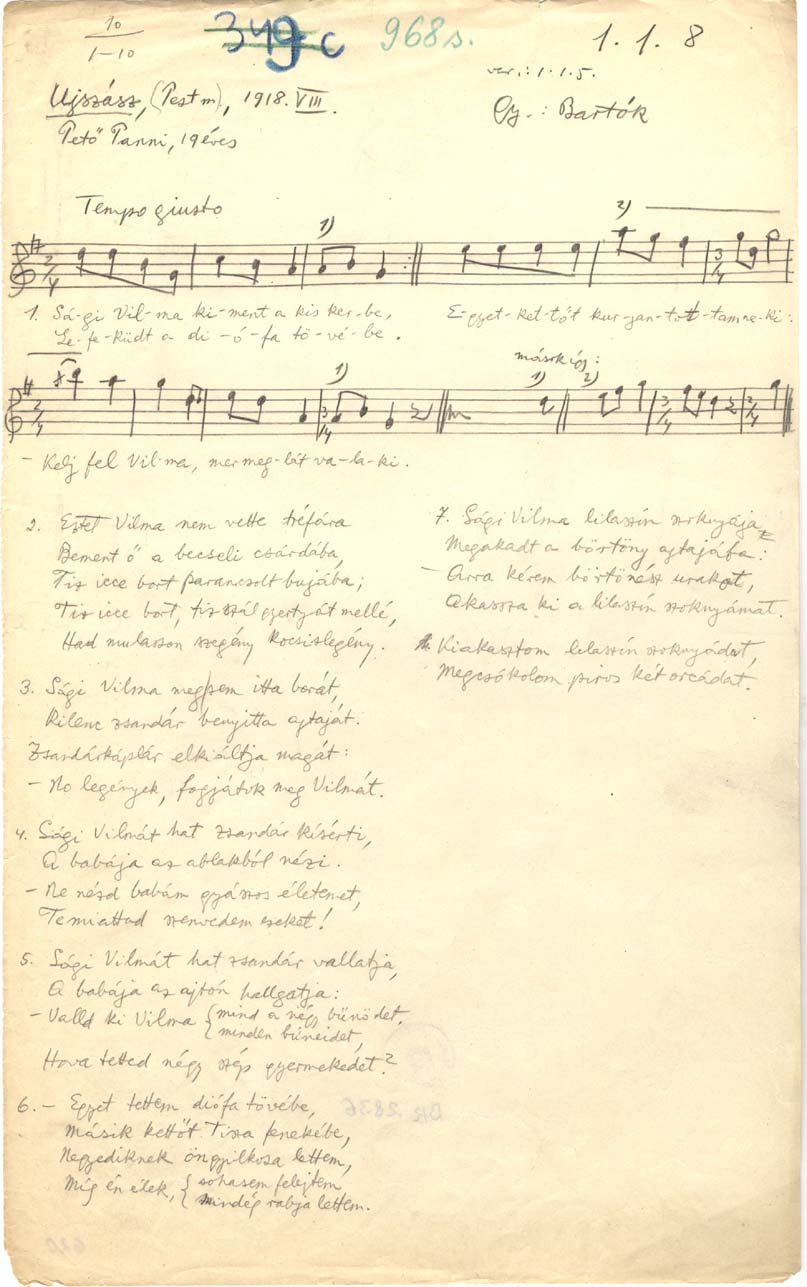 10
1–10
349c
968s.
1. 1. 8
var.: 1. 1. 5.
Ujszász, (Pest m), 1918. VIII.
Gy.: Bartók
Pető Panni, 19 éves
Tempo giusto
1)
2)
1. Sá-gi Vil-ma ki-ment a kis ker-be,
E-gyet-ket-tőt kur-jan-tot-tam ne-ki:
Le-fe-küdt a di-ó-fa tö-vé-be.
1)
másik így:
1)
2)
– Kelj fel Vil-ma, mer meg-lát va-la-ki.
2. Eztet Vilma nem vette tréfára
Bement ő a becseli csárdába,
Tiz icce bort parancsolt bujába;
Tiz icce bort, tiz szál gyertyát mellé,
Had mulasson szegény kocsislegény.
3. Sági Vilma meg sem itta borát,
Kilenc zsandár benyitta ajtaját.
Zsandárkáplár elkiáltja magát:
– No legények, fogjátok meg Vilmát.
4. Sági Vilmát hat zsandár kíséri,
A babája az ablakból nézi.
– Ne nézd babám gyászos életemet,
Temiattad szenvedem ezeket!
5. Sági Vilmát hat zsandár vallatja,
A babája az ajtón hallgatja:
– Valld ki Vilma { mind a négy bűnödet,
minden bűneidet,
Hova tetted négy szép gyermekedet?
6. – Egyet tettem diófa tövébe,
Másik kettőt Tisza fenekébe,
Negyediknek öngyilkosa lettem,
Míg én élek, { sohasem felejtem
mindég rabja lettem.
7. Sági Vilma lilaszín szoknyája
Megakadt a börtöny ajtajába:
– Arra kérem börtönész urakat,
Akassza ki a lilaszín szoknyámat.
Kiakasztom lilaszín szoknyádat,
Megcsókolom piros két orcádat.
BR 2836